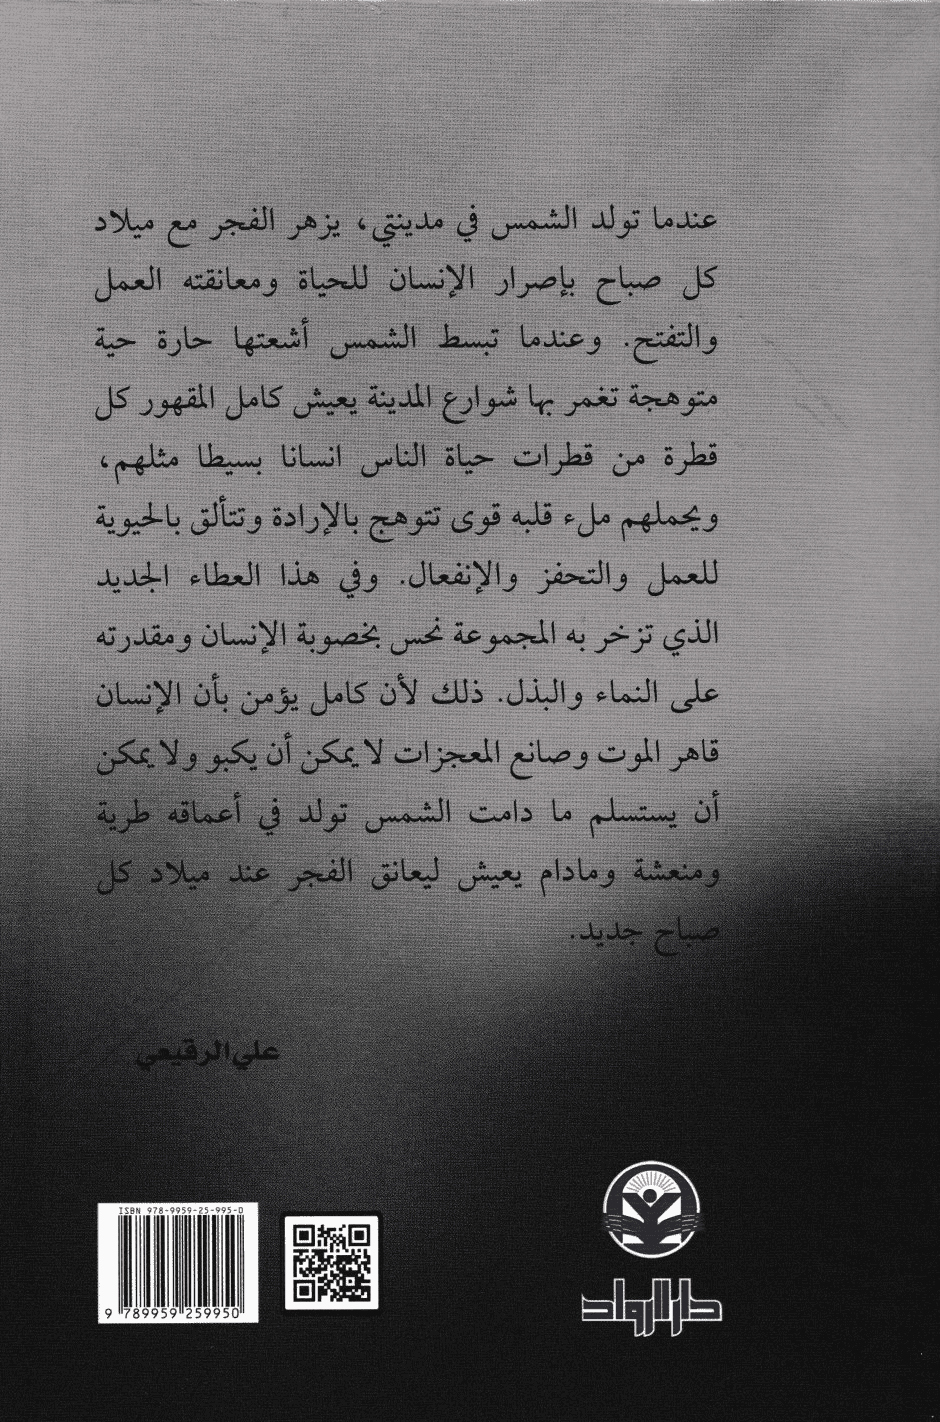 عندما تولد الشمس في مدينتي، يزهر الفجر مع ميلاد
كل صباح بإصرار الإنسان للحياة ومعانقته العمل
والتفتح. وعندما تبسط الشمس أشعتها حارة حية
متوهجة تغمر بها شوارع المدينة يعيش كامل المقهور كل
قطرة من قطرات حياة الناس انسانا بسيطا مثلهم،
ويحملهم ملء قلبه قوى تتوهج بالإرادة وتتألق بالحيوية
للعمل والتحفز والإنفعال. وفي هذا العطاء الجديد
الذي تزخر به المجموعة نحس بخصوبة الإنسان ومقدرته
على النماء والبذل. ذلك لأن كامل يؤمن بأن الإنسان
قاهر الموت وصانع المعجزات لا يمكن أن يكبو ولا يمكن
أن يستسلم ما دامت الشمس تولد في أعماقه طرية
ومنعشة ومادام يعيش ليعانق الفجر عند ميلاد كل
صباح جديد.
علي الرقيعي
ISBN 978-9959-25-995-0
9 789959 259950
دار الرواد